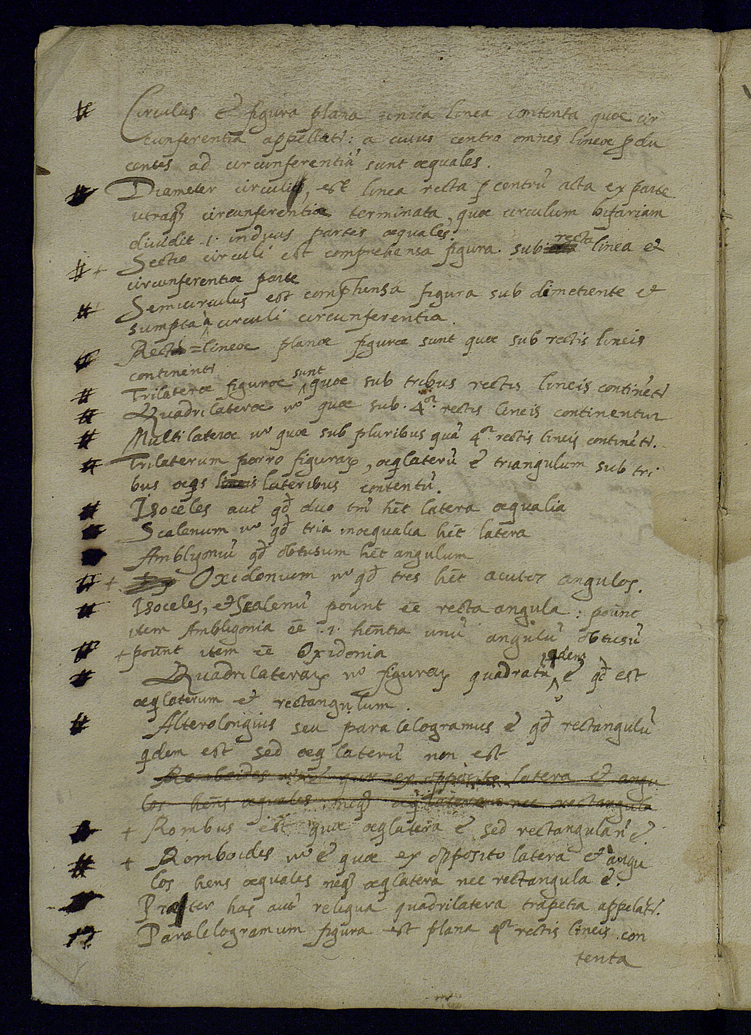 Circulus ẽ figura plana unica linea contenta quæ cir
cunferentia appellat̃: a cuius centro omnes lineæ ꝑdu
centes ad circunferentiã sunt æquales.
Diameter circuli, est linea recta ꝑ centrũ acta ex parte
utraqꝫ circunferentiæ terminata, quæ circulum bifariam
diuidit .i. in duas partes æquales.
Sectio circuli est comprehensa figura. sub recta linea et
circunferentiæ parte
Semicirculus est comp̃hensa figura sub dimetiente et
sumpta à circuli circunferentia.
Rectæ=lineæ planæ figuræ sunt quæ sub rectis lineis
continent̃
Trilateræ figuræ sunt quæ sub tribus rectis lineis continẽt̃
Quadrilateræ ũo quæ sub .4ᵒʳ. rectis lineis continentur
Multilateræ ũo quæ sub pluribus quã 4ᵒʳ rectis lineis continẽt̃.
Trilaterum porro figuraꝝ, æq̃laterũ ẽ triangulum sub tri
bus æq̃s lateribus contentũ.
Isoceles aut̃ qd̃ duo tm̃ hẽt latera æqualia
Scalenum ũo qd̃ tria inæqualia hẽt latera
Ambligoniũ qd̃ obtusum hẽt angulum
+ Oxidonium ũo qd̃ tres hẽt acutos angulos.
Isoceles, et Scalenũ põunt ẽe recta angula : põunt
item Ambligonia ẽe .i. hẽntia unũ angulũ obtusũ
+ põunt item ẽe Oxidonia
Quadrilateraꝝ ũo figuraꝝ quadratũ q̃dem ẽ qd̃ est
æq̃laterum et rectangulum.
Alterolongius seu paralelogramus ẽ qd̃ rectangulũ
q̃dem est sed æq̃laterũ non est
Romboides ũo ẽ quæ ex opposito latera et angu
los hẽns æquales neqꝫ æq̃latera nec rectangula
+ Rombus est quæ æq̃latera ẽ sed rectangula ñ ẽ.
+ Romboides ũo ẽ quæ ex opposito latera et angu
los hens æquales neqꝫ æq̃latera nec rectangula ẽ.
Præter has aut̃ reliqua quadrilatera trapetia appelat̃.
Paralelogramum figura est plana 4ᵒʳ rectis lineis con
tenta